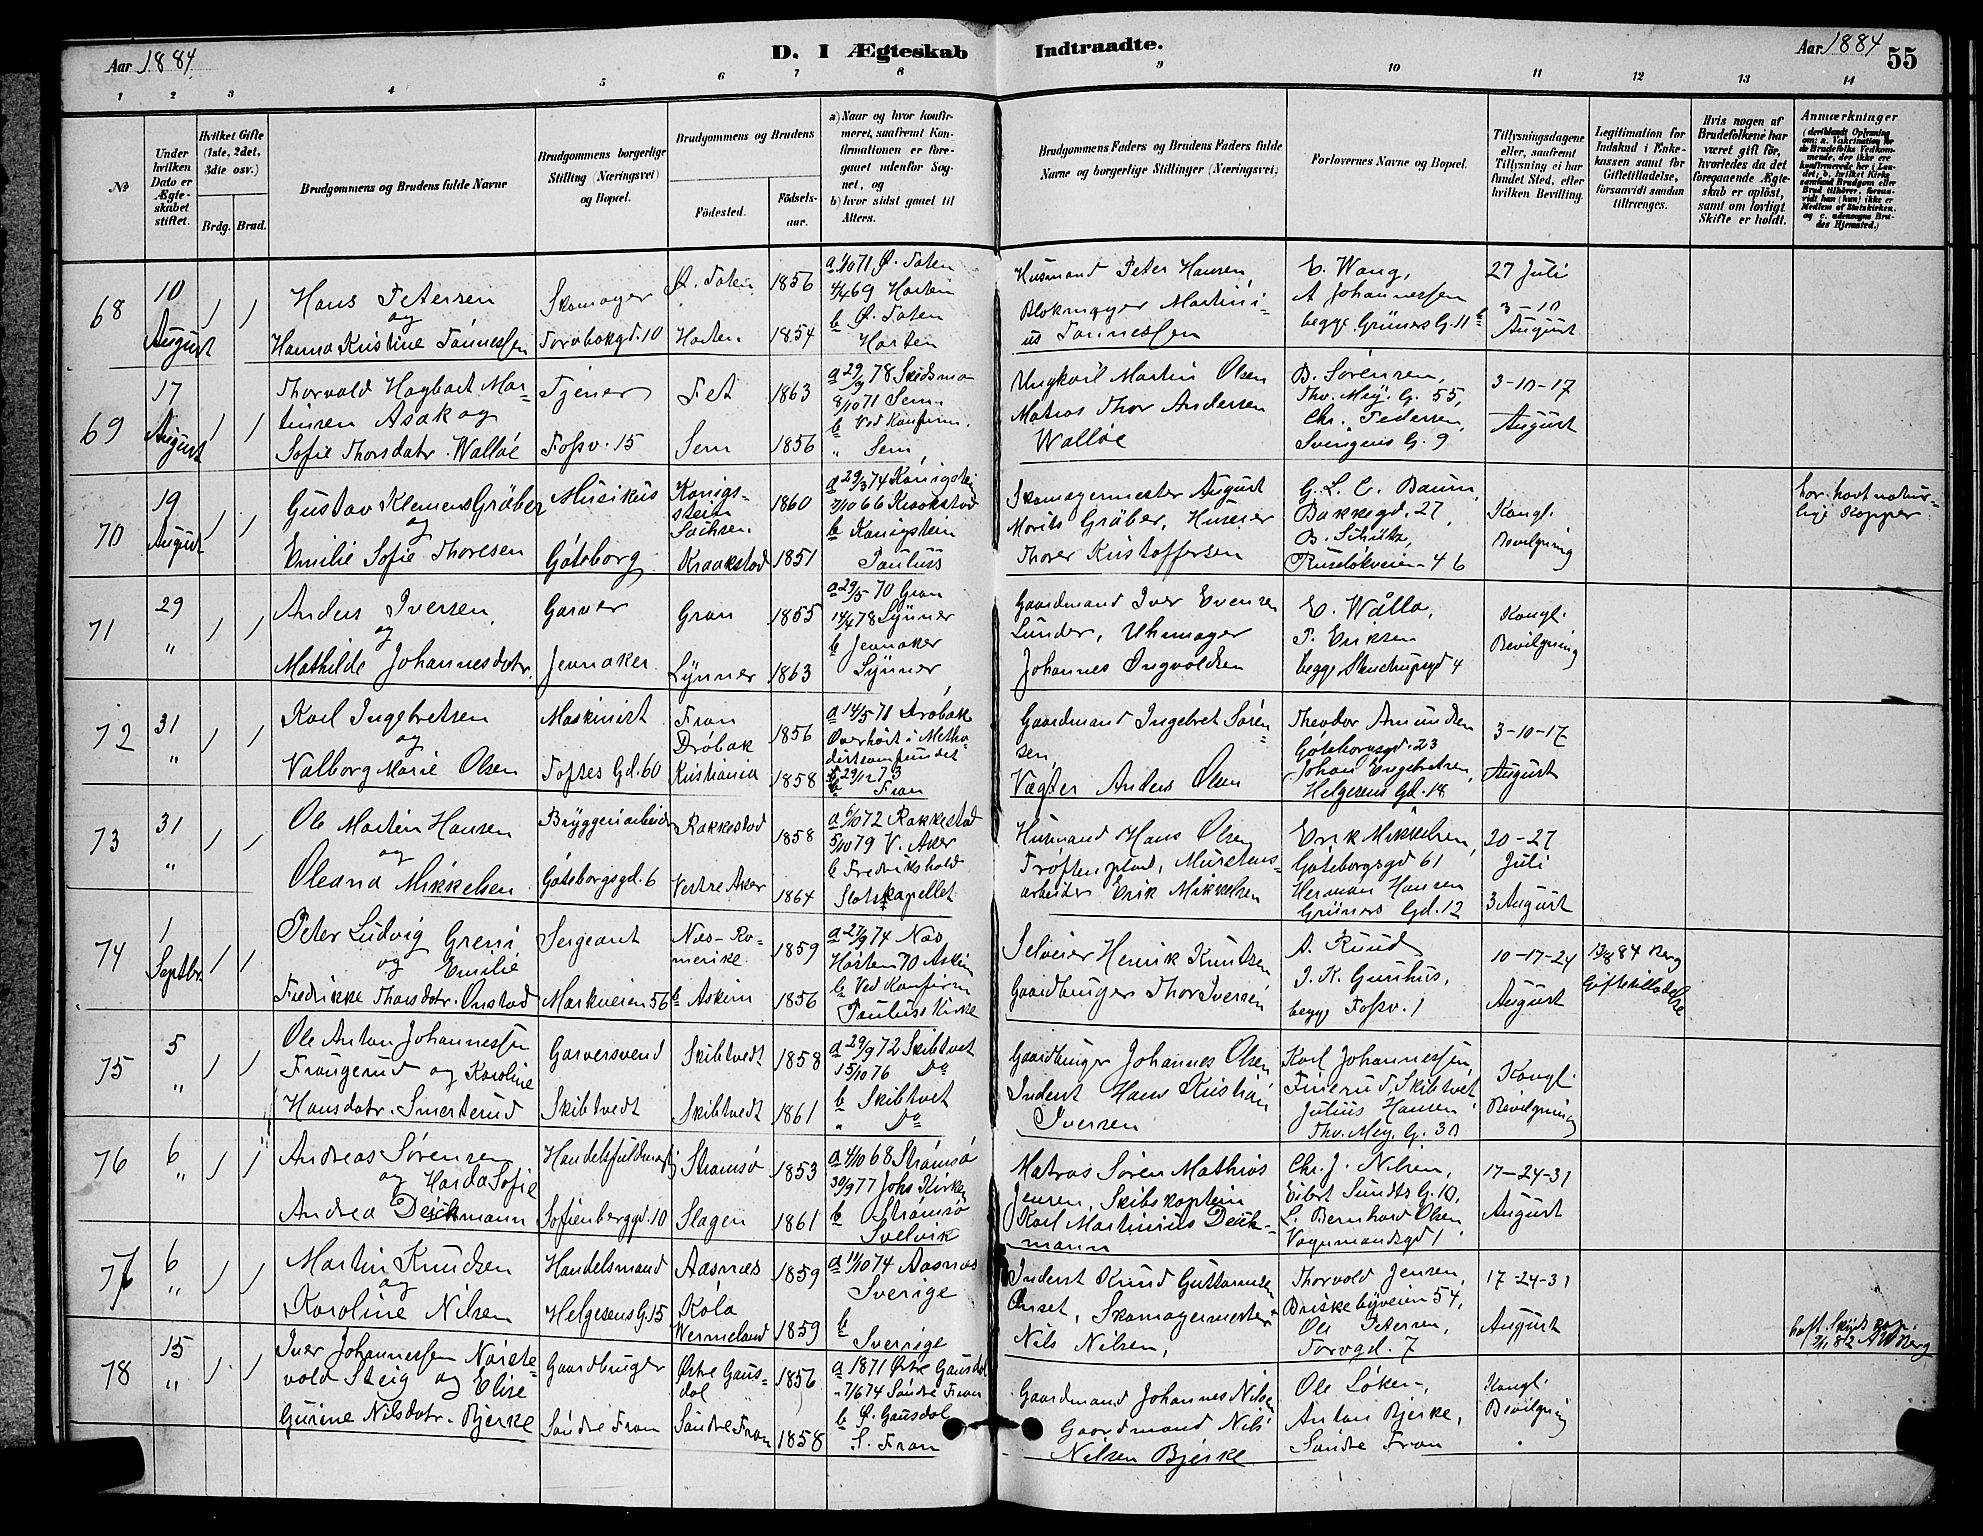 Aar 1884. D. I Ægteskab Indtraadte. Aar 1884 55
1 2 3 4 5 6 7 8 9 10 11 12 13 14
No
Under hvilken Dato er Ægteskabet stiftet.
Hvilket Gifte (1ste, 2det, 3die osv.)
Brdg. Brud.
Brudgommens og Brudens fulde Navne
Brudgommens borgerlige Stilling (Næringsvei) og Bopæl.
Brudgommens og Brudens
Fødested.
Fødselsaar.
a) Naar og hvor konfirmeret, saafremt Konfirmationen er foregaaet udenfor Sognet, og
b) hvor sidst gaaet til Alters.
Brudgommens Faders og Brudens Faders fulde Navne og borgerlige Stillinger (Næringsvei)
Forlovernes Navne og Bopæl.
Tillysningsdagene eller, saafremt Tillysning ei har fundet Sted, efter hvilken Bevilling.
Legitimation for Indskud i Enkekassen samt for Giftetilladelse, forsaavidt saadan tiltrænges.
Hvis nogen af Brudefolkene har været gift før, hvorledes da det foregaaende Ægteskab er opløst, samt om lovligt Skifte er holdt.
Anmærkninger
68
10 August
Hans Petersen
og
Hanna Kristine Tönnessen
Skomager
Torvbakgd. 10
Ø. Toten 1856
Horten 1854
a 1/10 71 Ø. Toten
4/4 69 Horten
b Ø. Toten
Horten
Husmand Peter Hansen,
Blokmager Martini-
us Tønnessen
E. Wang,
A Johannessen
begge Grüners G. 11 b
27 Juli
3-10
August
69
17 August
Thorvald Hagbart Mar-
tinsen Asak og
Sofie Thorsdatr. Walløe
Tjener
Fossv. 15
Fet 1863
Sem 1856
a 29/9 78 Skedsmo
8/10 71 Sem
b Ved Konfirm.
" Sem,
Ungkarl Martin Olsen
Matros Thor Andersen
Walløe
B. Sörensen,
Thv. Mey. G. 55,
Chr. Pedersen,
Svengens G. 9
3-10-17
August
70
19 August
Gustav Klemens Gräber
og
Emilie Sofie Thoresen
Musikus
Göteborg
Königs-
stein
Sachsen 1860
Kraakstad 1851
a 29/3 74 Königstein
7/10 66 Kraakstad
b Königstein
Paulus
Skomagermester August
Morits Gräber, Huseier
Thorer Kristoffersen
G. L. C. Baum,
Bakkegd. 27,
B. Schütz,
Ruseløkveien 46
Kongl.
Bevilgning
har havt natur-
lige Kopper
71
29 "
Anders Iversen,
og
Mathilde Johannesdatr.
Garver
Jevnaker
Gran 1855
Lynner 1863
a 29/5 70 Gran
14/4 78 Lynner
b Jevnaker
Lynner
Gaardmand Iver Evensen
Lunder, Uhrmager
Johannes Ingvoldsen
E. Wålla,
P. Eriksen
begge Stenstrupsgd 4
Kongl.
Bevilgning
72
31 "
Karl Ingebretsen
og
Valborg Marie Olsen
Maskinist
Toftes Gd. 60
Fron
Dröbak 1856
Kristiania 1858
a 14/5 71 Dröbak
Overhørt i Metho-
distsamfundet
29/12 73
b Fron
Gaardmand Ingebret Sören-
sen,
Vægter Anders Olsen
Theodor Amundsen
Göteborgsgd. 23
Johan Engebretsen,
Helgesens Gd. 18
3-10-17
August
73
31 "
Ole Martin Hansen
og
Oleana Mikkelsen
Bryggeriarbeider
Göteborgsgd. 6
Rakkestad 1858
Vestre Aker 1864
a 6/10 72 Rakkestad
5/10 79 V. Aker
b Fredrikshald
Slotskapellet
Husmand Hans Olsen
Erik Mikkelsen
Erik Mikkelsen,
Göteborgsgd 61
Herman Hansen
Grüners Gd. 12
20-27
Juli
3 August
74
1 Septbr.
Peter Ludvig Greni
og Emilie
Fredrikke Thorsdatr. Onstad
Sergeant
Markveien 56 b
Næs-Ro-
merike 1859
Askim 1856
a 27/9 74 Næs
Hösten 70 Askim
b Ved Konfirm
Paulus Kirke
Selveier Henrik Knudsen
Gaardbruger Thor Iversen
A. Ruud
J. K. Gunhus,
begge Fossv. 1
10-17-24
August
13/8 84 Berg
Giftetilladelse
75
5 "
Ole Anton Johannessen
Fraugerud og Karoline
Hansdatr. Smerterud
Garversvend
Skibtvedt
Skibtvedt 1858
Skibtvedt 1861
a 29/9 72 Skibtvet
15/10 76 Do
b Skibtvet
" Do
Gaardbruger Johannes Olsen
Inderst Hans Kristian
Iversen
Karl Johannessen,
Finerud, Skibtvet,
Julius Hansen
Thv. Mey. G. 30
Kongl.
Bevilgning
76
6 "
Andreas Sørensen
og Harda Sofie
Andrea Deichmann
Handelsfuldmæg
Sofienberggd. 10
Strømsø 1853
Slagen 1861
a 4/10 68 Strømsø
30/9 77 Johs Kirke
b Strømsø
Svelvik
Matros Søren Mathias
Jensen, Skibskaptein
Karl Martinius Deich-
mann
Chr. J. Nilsen,
Eilert Sundts G. 10,
L. Bernhard Olsen
Vognmandsgd 1
17-24-31
August
77
6 "
Martin Knudsen
og
Karoline Nilsen
Handelsmand
Helgesens G. 15
Aasnæs 1859
Köla
Wermeland 1859
a 11/10 74 Aasnæs
Sverige
b
Sverige
Inderst Knud Guttormsen
Skomagermester
Nils Nilsen,
Thorvald Jensen,
Briskebyveien 54,
Ole Petersen,
Torvgd. 7
17-24-31
August
78
15 "
Iver Johannessen Nordre-
vold Steig og Elise
Gurine Nilsdatr. Bjerke
Gaardbruger
Søndre Fron
Østre Gaus-
dal 1856
Søndre Fron 1858
a 1871 Østre Gausdal
" 7/6 74 Søndre Fron
b Ø. Gausdal
S. Fron
Gaardmand Johannes Nilsen
Gaardmand Nils
Nilsen Bjerke
Ole Løken,
Anton Bjerke,
Søndre Fron
Kongl.
Bevilgning